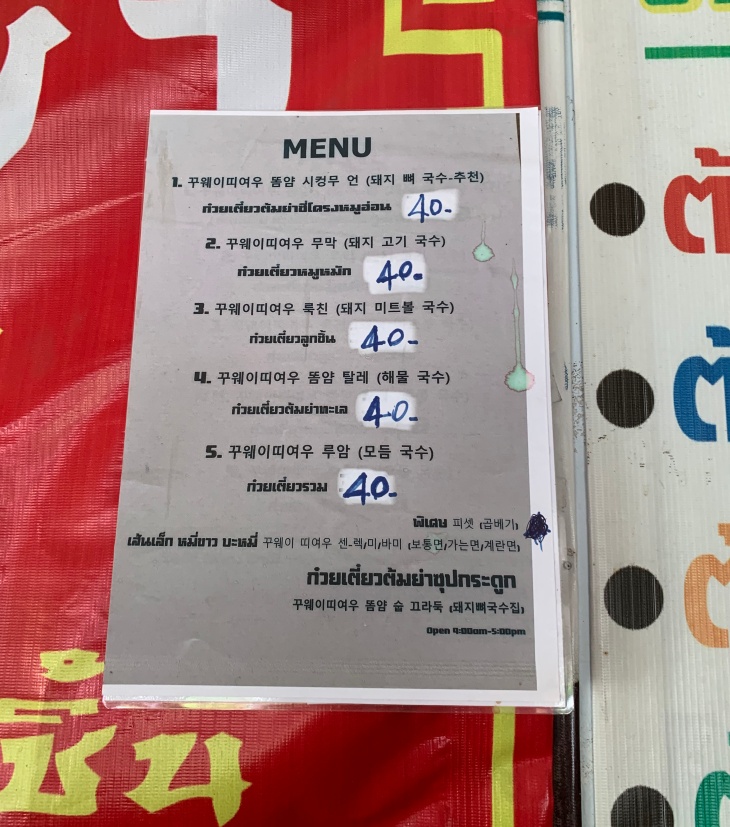 MENU
1. 꾸웨이띠여우 똠얌 시컹무 언 (돼지 뼈 국수-추천)
ก๋วยเตี๋ยวต้มยำซี่โครงหมูอ่อน 40.-
2. 꾸웨이띠여우 무막 (돼지 고기 국수)
ก๋วยเตี๋ยวหมูหมัก 40.-
3. 꾸웨이띠여우 룩친 (돼지 미트볼 국수)
ก๋วยเตี๋ยวลูกชิ้น 40.-
4. 꾸웨이띠여우 똠얌 탈레 (해물 국수)
ก๋วยเตี๋ยวต้มยำทะเล 40.-
5. 꾸웨이띠여우 루암 (모듬 국수)
ก๋วยเตี๋ยวรวม 40.-
พิเศษ 피셋 (곱베기)
เส้นเล็ก หมี่ขาว บะหมี่ 꾸웨이 띠여우 센-렉/미/바미 (보통면/가는면/계란면)
ก๋วยเตี๋ยวต้มยำซุปกระดูก
꾸웨이띠여우 똠얌 숩 끄라둑 (돼지뼈국수집)
Open 9:00am-5:00pm
ต้
ต้
ต้